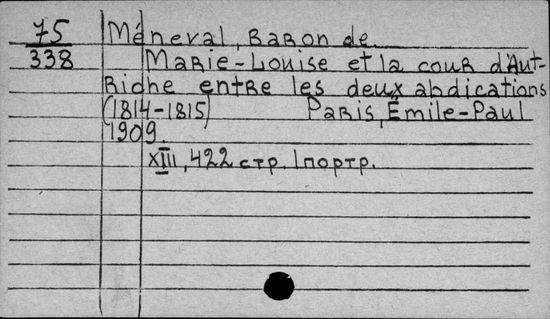 75 Méneval, Baron de
338 Marie-Louise et la cour d'Aut-
riche entre les deux abdications
(1814-1815) Paris, Émile-Paul
1909.
XIII, 422 стр. 1 портр.